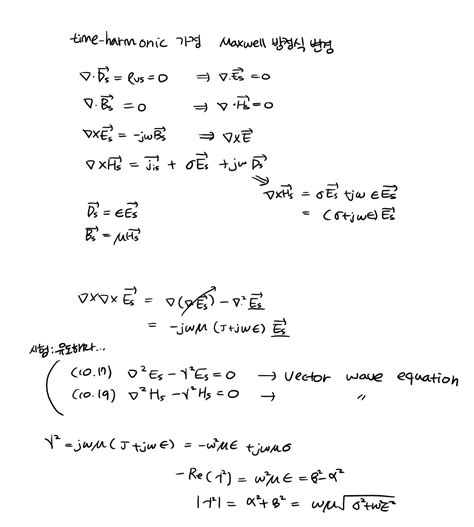 time-harmonic 가정 Maxwell 방정식 변경
∇·D⃗s = ρvs = 0 ⇒ ∇·E⃗s = 0
∇·B⃗s = 0 ⇒ ∇·H⃗s = 0
∇×E⃗s = -jωB⃗s ⇒ ∇×E⃗
∇×H⃗s = j⃗is + σE⃗s + jωD⃗s
⇒ ∇×H⃗s = σE⃗s + jωεE⃗s
= (σ+jωε)E⃗s
D⃗s = εE⃗s
B⃗s = μH⃗s
∇×∇×E⃗s = ∇(∇·E⃗s) - ∇²E⃗s
= -jωμ(J+jωε)E⃗s
시험: 유도하라...
(10.17) ∇²Es - γ²E⃗s = 0 → vector wave equation
(10.19) ∇²Hs - γ²Hs = 0 → 〃
γ² = jωμ(J+jωε) = -ω²με + jωμσ
-Re(γ²) = ω²με = β²-α²
|γ²| = α²+β² = ωμ√σ²+ω²ε²